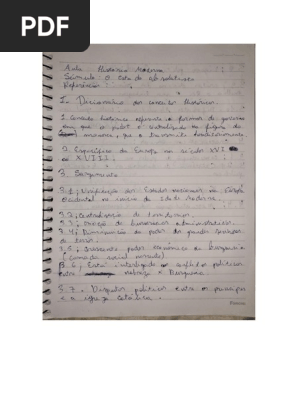 PDF
Aula História Moderna
Seminário O Estado Absolutista
Referência:
1- Dicionário dos conceitos Históricos.
1. Conceito histórico referente a formas de governo
em que o poder é centralizado na figura do
monarca, que o transmite hereditariamente.
2. Específico da Europa no século XVI
a XVIII;
3 Surgimento
3.1, Unificação dos Estados nacionais na Europa
Ocidental no início da Idade Moderna.
3.2; Centralização de
3.3; Criação de burocracias administrativas.
3.4; Diminuição do poder dos grandes senhores
de terras.
3.5; Crescente poder econômico da burguesia
(camada social
3.6; interligado ao conflito político
entre nobreza x Burguesia.
3.7. Disputas políticas entre os príncipes
x a igreja católica.